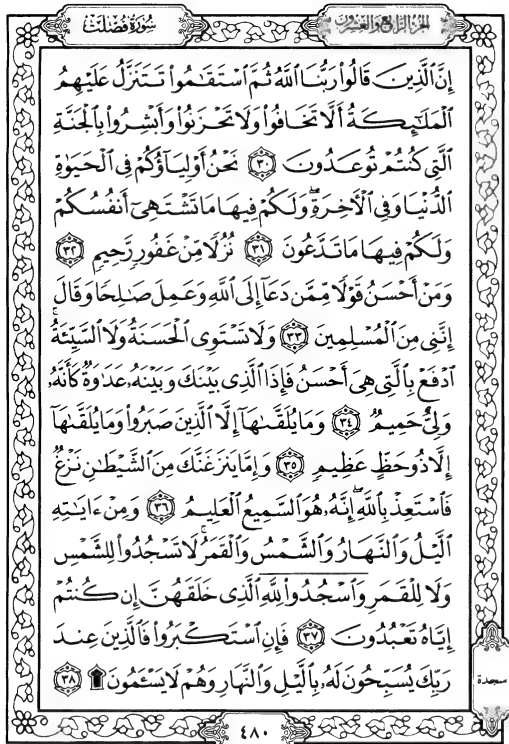 سورة فصلت
الجزء الرابع والعشرون
إِنَّ ٱلَّذِينَ قَالُوا۟ رَبُّنَا ٱللَّهُ ثُمَّ ٱسْتَقَـٰمُوا۟ تَتَنَزَّلُ عَلَيْهِمُ
ٱلْمَلَـٰٓئِكَةُ أَلَّا تَخَافُوا۟ وَلَا تَحْزَنُوا۟ وَأَبْشِرُوا۟ بِٱلْجَنَّةِ
ٱلَّتِى كُنتُمْ تُوعَدُونَ ٣٠ نَحْنُ أَوْلِيَآؤُكُمْ فِى ٱلْحَيَوٰةِ
ٱلدُّنْيَا وَفِى ٱلْـَٔاخِرَةِ ۖ وَلَكُمْ فِيهَا مَا تَشْتَهِىٓ أَنفُسُكُمْ
وَلَكُمْ فِيهَا مَا تَدَّعُونَ ٣١ نُزُلًا مِّنْ غَفُورٍ رَّحِيمٍ ٣٢
وَمَنْ أَحْسَنُ قَوْلًا مِّمَّن دَعَآ إِلَى ٱللَّهِ وَعَمِلَ صَـٰلِحًا وَقَالَ
إِنَّنِى مِنَ ٱلْمُسْلِمِينَ ٣٣ وَلَا تَسْتَوِى ٱلْحَسَنَةُ وَلَا ٱلسَّيِّئَةُ ۚ
ٱدْفَعْ بِٱلَّتِى هِىَ أَحْسَنُ فَإِذَا ٱلَّذِى بَيْنَكَ وَبَيْنَهُۥ عَدَٰوَةٌ كَأَنَّهُۥ
وَلِىٌّ حَمِيمٌ ٣٤ وَمَا يُلَقَّىٰهَآ إِلَّا ٱلَّذِينَ صَبَرُوا۟ وَمَا يُلَقَّىٰهَآ
إِلَّا ذُو حَظٍّ عَظِيمٍ ٣٥ وَإِمَّا يَنزَغَنَّكَ مِنَ ٱلشَّيْطَـٰنِ نَزْغٌ
فَٱسْتَعِذْ بِٱللَّهِ ۖ إِنَّهُۥ هُوَ ٱلسَّمِيعُ ٱلْعَلِيمُ ٣٦ وَمِنْ ءَايَـٰتِهِ
ٱلَّيْلُ وَٱلنَّهَارُ وَٱلشَّمْسُ وَٱلْقَمَرُ ۚ لَا تَسْجُدُوا۟ لِلشَّمْسِ
وَلَا لِلْقَمَرِ وَٱسْجُدُوا۟ لِلَّهِ ٱلَّذِى خَلَقَهُنَّ إِن كُنتُمْ
إِيَّاهُ تَعْبُدُونَ ٣٧ فَإِنِ ٱسْتَكْبَرُوا۟ فَٱلَّذِينَ عِندَ
رَبِّكَ يُسَبِّحُونَ لَهُۥ بِٱلَّيْلِ وَٱلنَّهَارِ وَهُمْ لَا يَسْـَٔمُونَ ۩ ٣٨
سجدة
٤٨٠